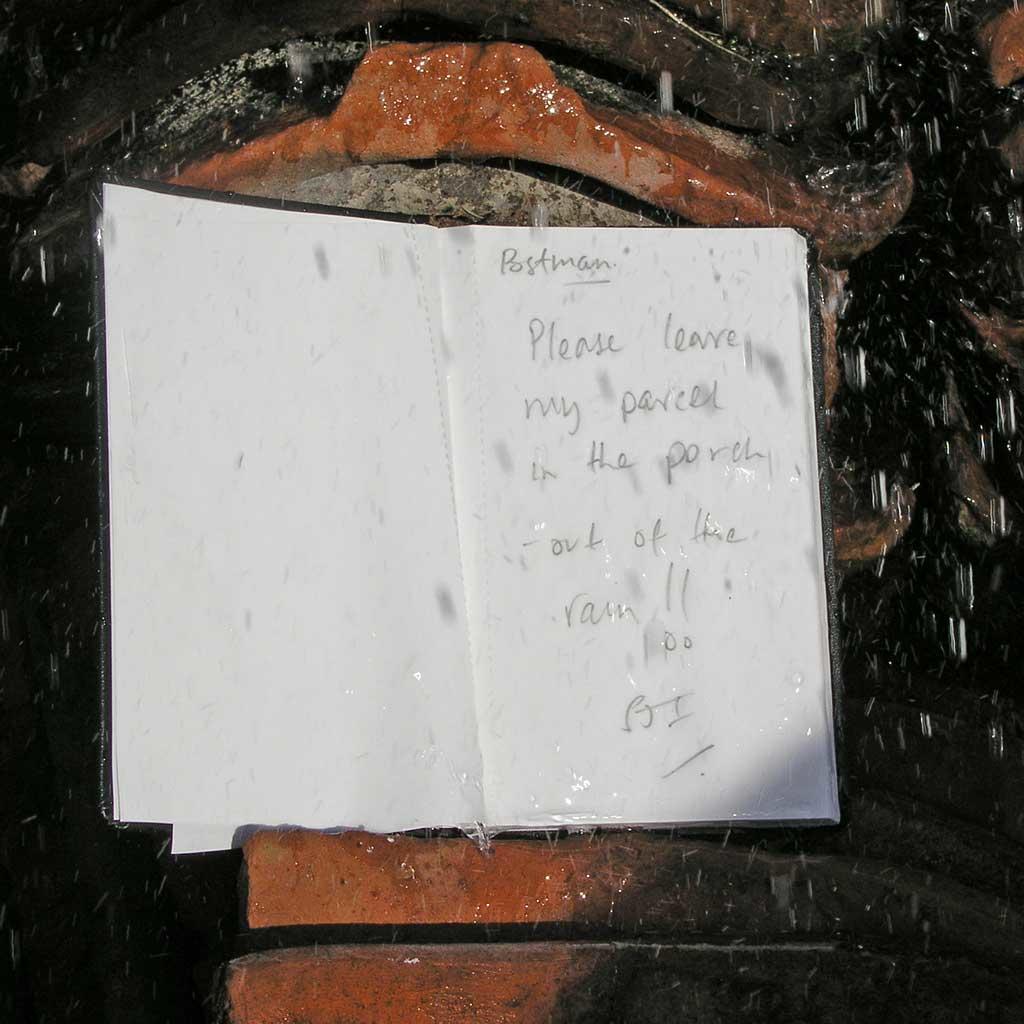 Postman.
Please leave
my parcel
in the porch,
- out of the
rain!!
BJI